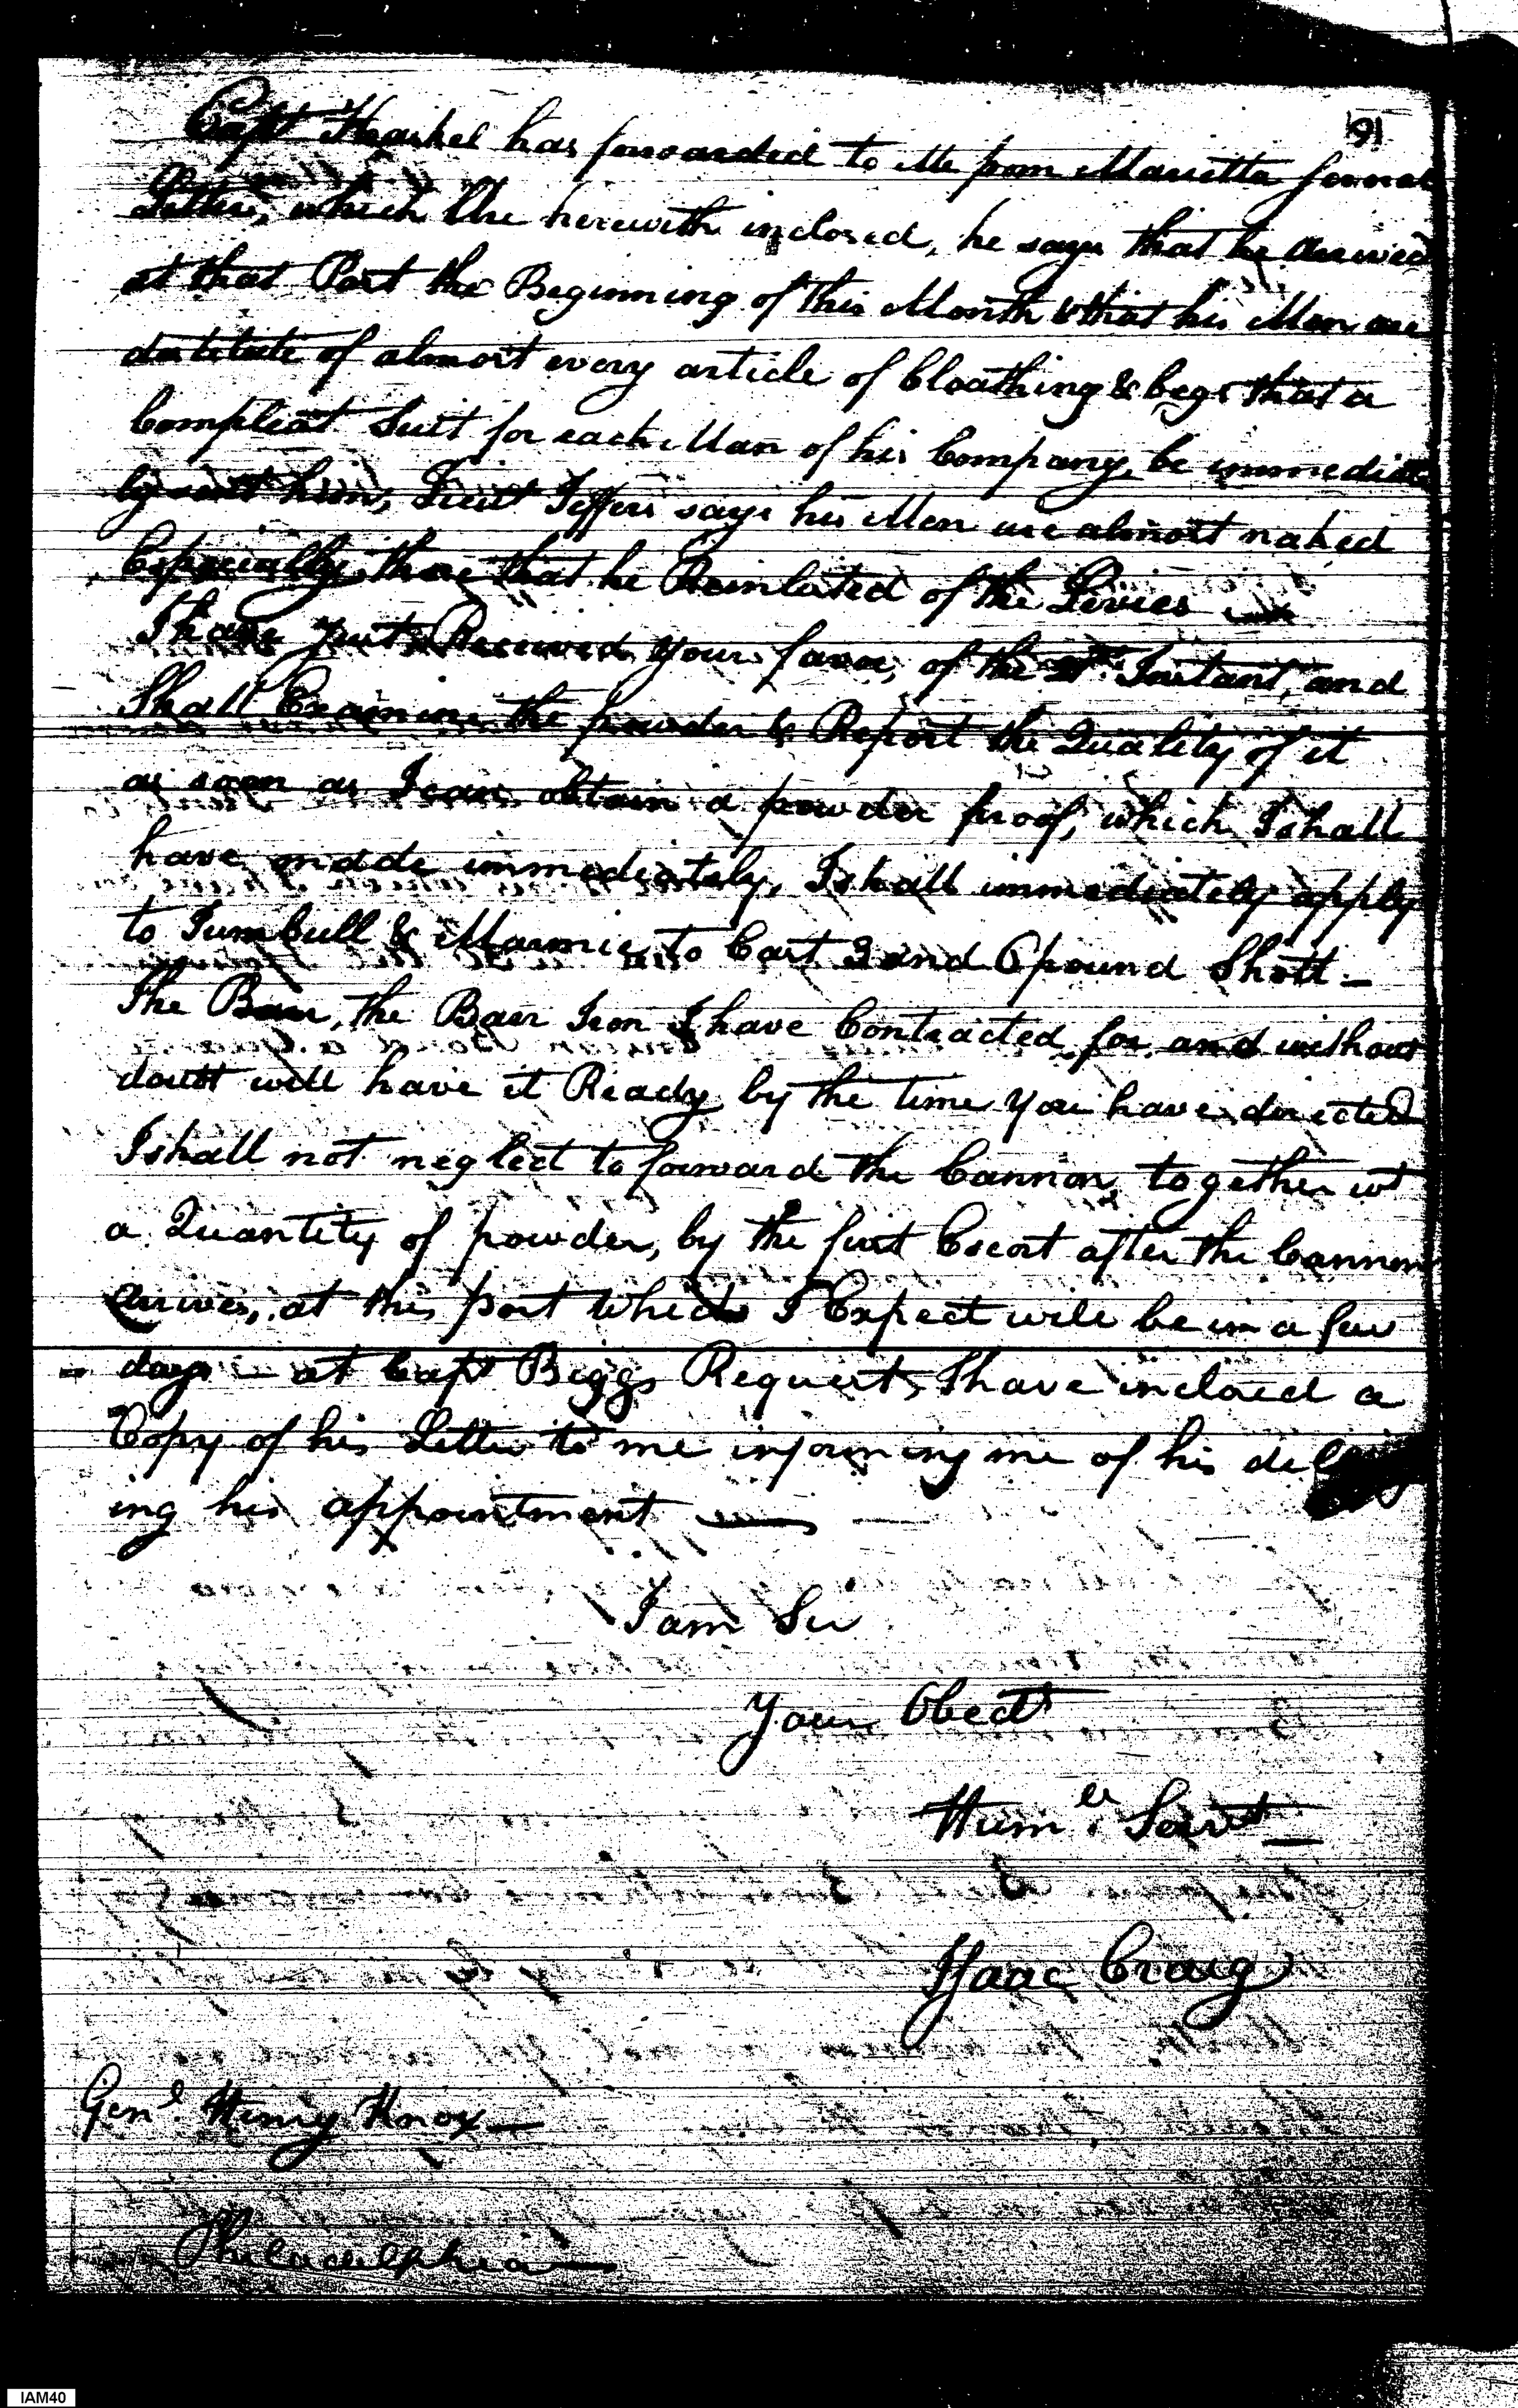 91
Capt Haskel has forwarded to Me from Marietta several
Letters, which are herewith inclosed, he says that he Arrived
at that Post the Beginning of this Month & that his Men are
destitute of almost every article of Cloathing & begs that a
Compleat Suit for each Man of his Company, be immediate
ly sent him, Lieut Jeffers says his Men are almost naked
Especially those that he Reinlisted of the Levies
I have Just Received your favor, of the Instant, and
Shall Examine the powder & Report the Quality of it
as soon as I can obtain a powder proof, which I shall
have made immediately, I shall immediately apply
to Turnbull & Marmie, to Cast 3 and 6 pound Shott —
The Barr, the Barr Iron I have Contracted for and without
doubt will have it Ready by the time you have directed
I shall not neglect to forward the Cannon, together wt
a Quantity of powder, by the first Escort after the Cannon
arrives, at this post which I Expect will be in a few
days — at Capt Biggs Request, I have inclosed a
Copy of his Letter to me informing me of his
ing his appointment —
I am Sir
Your Obedt
Humle Servt —
Isaac Craig
Genl Henry Knox —
Philadelphia —
IAM40